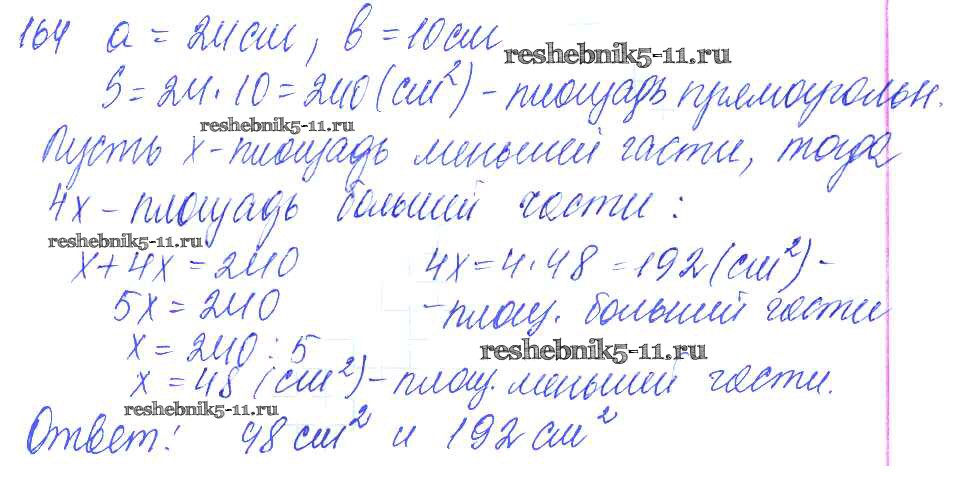 164 a = 24 см, в = 10 см
reshebnik5-11.ru
S = 24 · 10 = 240 (см²) – площадь прямоугольн.
reshebnik5-11.ru
Пусть x – площадь меньшей части, тогда
4x – площадь большей части :
reshebnik5-11.ru
x + 4x = 240 4x = 4 · 48 = 192 (см²) –
5x = 240 – площ. большей части
x = 240 : 5
reshebnik5-11.ru
x = 48 (см²) – площ. меньшей части.
reshebnik5-11.ru
Ответ: 48 см² и 192 см²